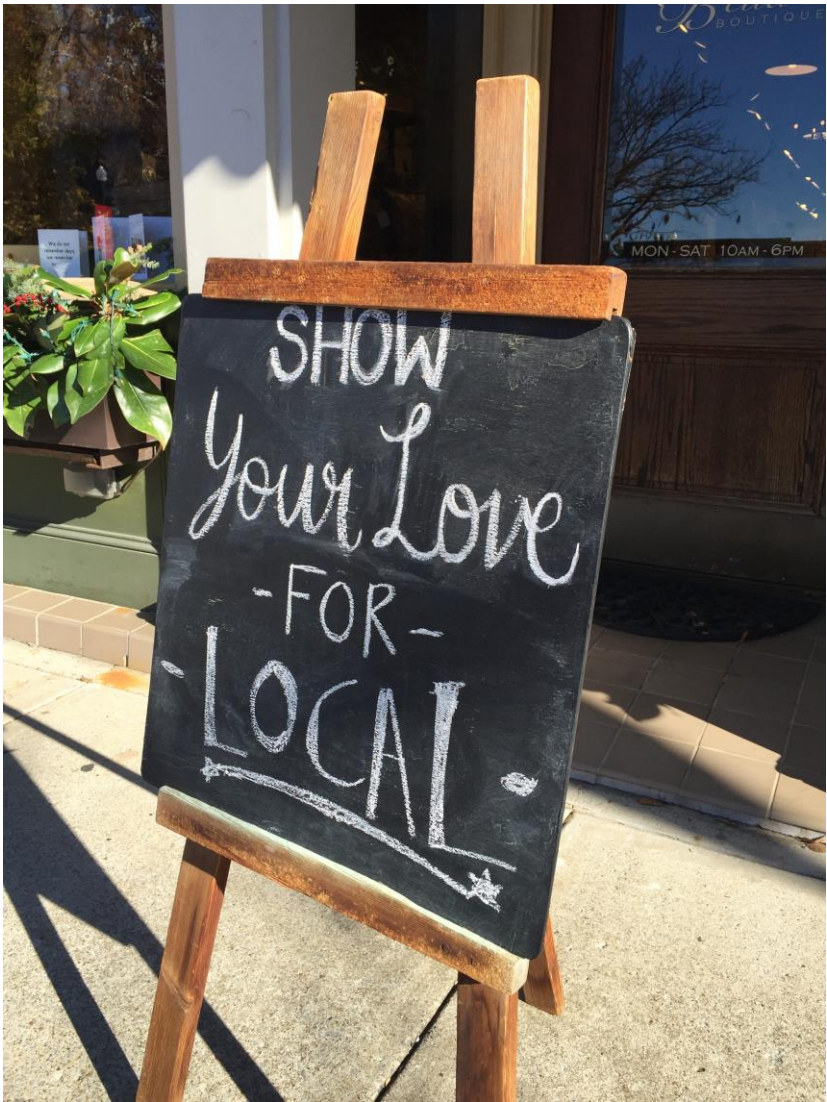 BOUTIQUE
MON - SAT 10AM - 6PM
SHOW
Your Love
- FOR -
- LOCAL -